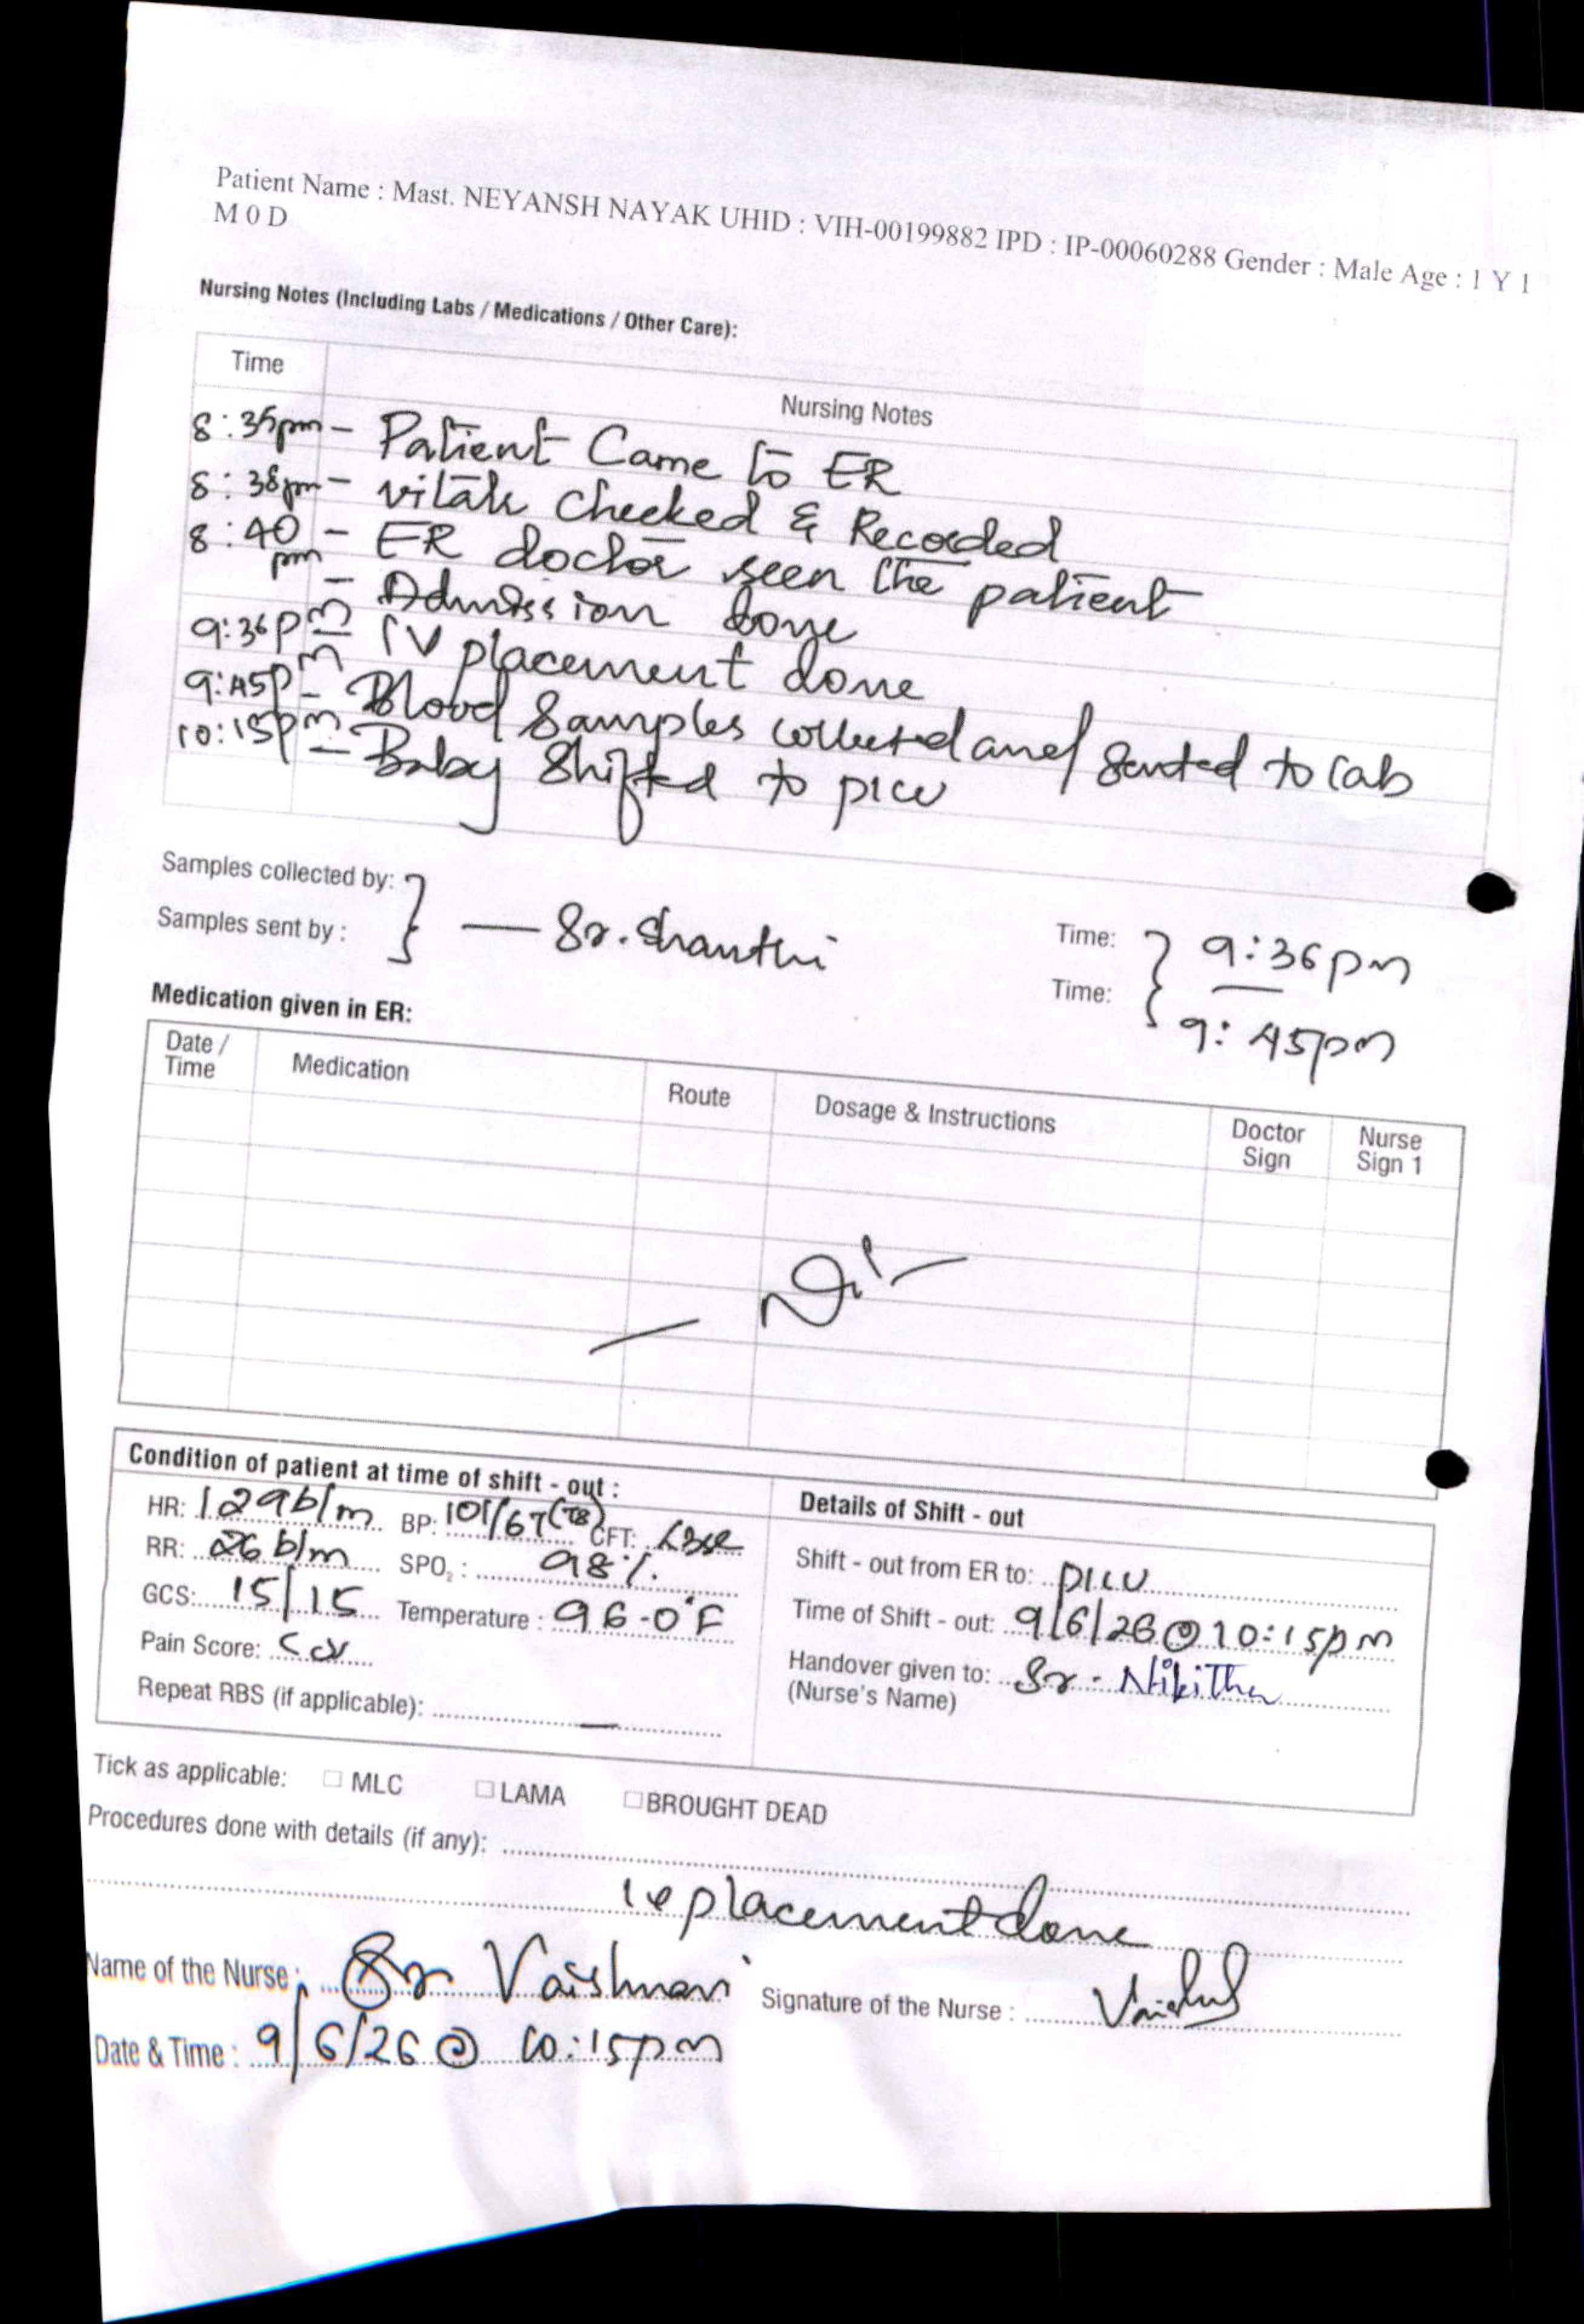 Patient Name : Mast. NEYANSH NAYAK UHID : VIH-00199882 IPD : IP-00060288 Gender : Male Age : 1 Y 1
M 0 D
Nursing Notes (Including Labs / Medications / Other Care):
Time Nursing Notes
8:35pm - Patient Came to ER
8:38pm - vitals Checked & Recorded
8:40 pm - ER doctor seen the patient
- Admission done
9:36pm - IV placement done
9:45pm - Blood Samples collected and sented to lab
10:15pm - Baby Shifted to picu
Samples collected by: } — Sr. Shanthi Time: } 9:36pm
Samples sent by : Time: 9:45pm
Medication given in ER:
Date / Time Medication Route Dosage & Instructions Doctor Sign Nurse Sign 1
— Nil —
Condition of patient at time of shift - out :
HR: 129b/m BP: 101/67 CFT:
RR: 26 b/m SPO2 : 98%
GCS: 15/15 Temperature : 96.0°F
Pain Score:
Repeat RBS (if applicable): —
Details of Shift - out
Shift - out from ER to: PICU
Time of Shift - out: 9/6/26 @ 10:15pm
Handover given to: Sr. Nikitha
(Nurse's Name)
Tick as applicable: ☐ MLC ☐ LAMA ☐ BROUGHT DEAD
Procedures done with details (if any):
placement done
Name of the Nurse : Sr Vaishnavi Signature of the Nurse :
Date & Time : 9/6/26 @ 10:15pm